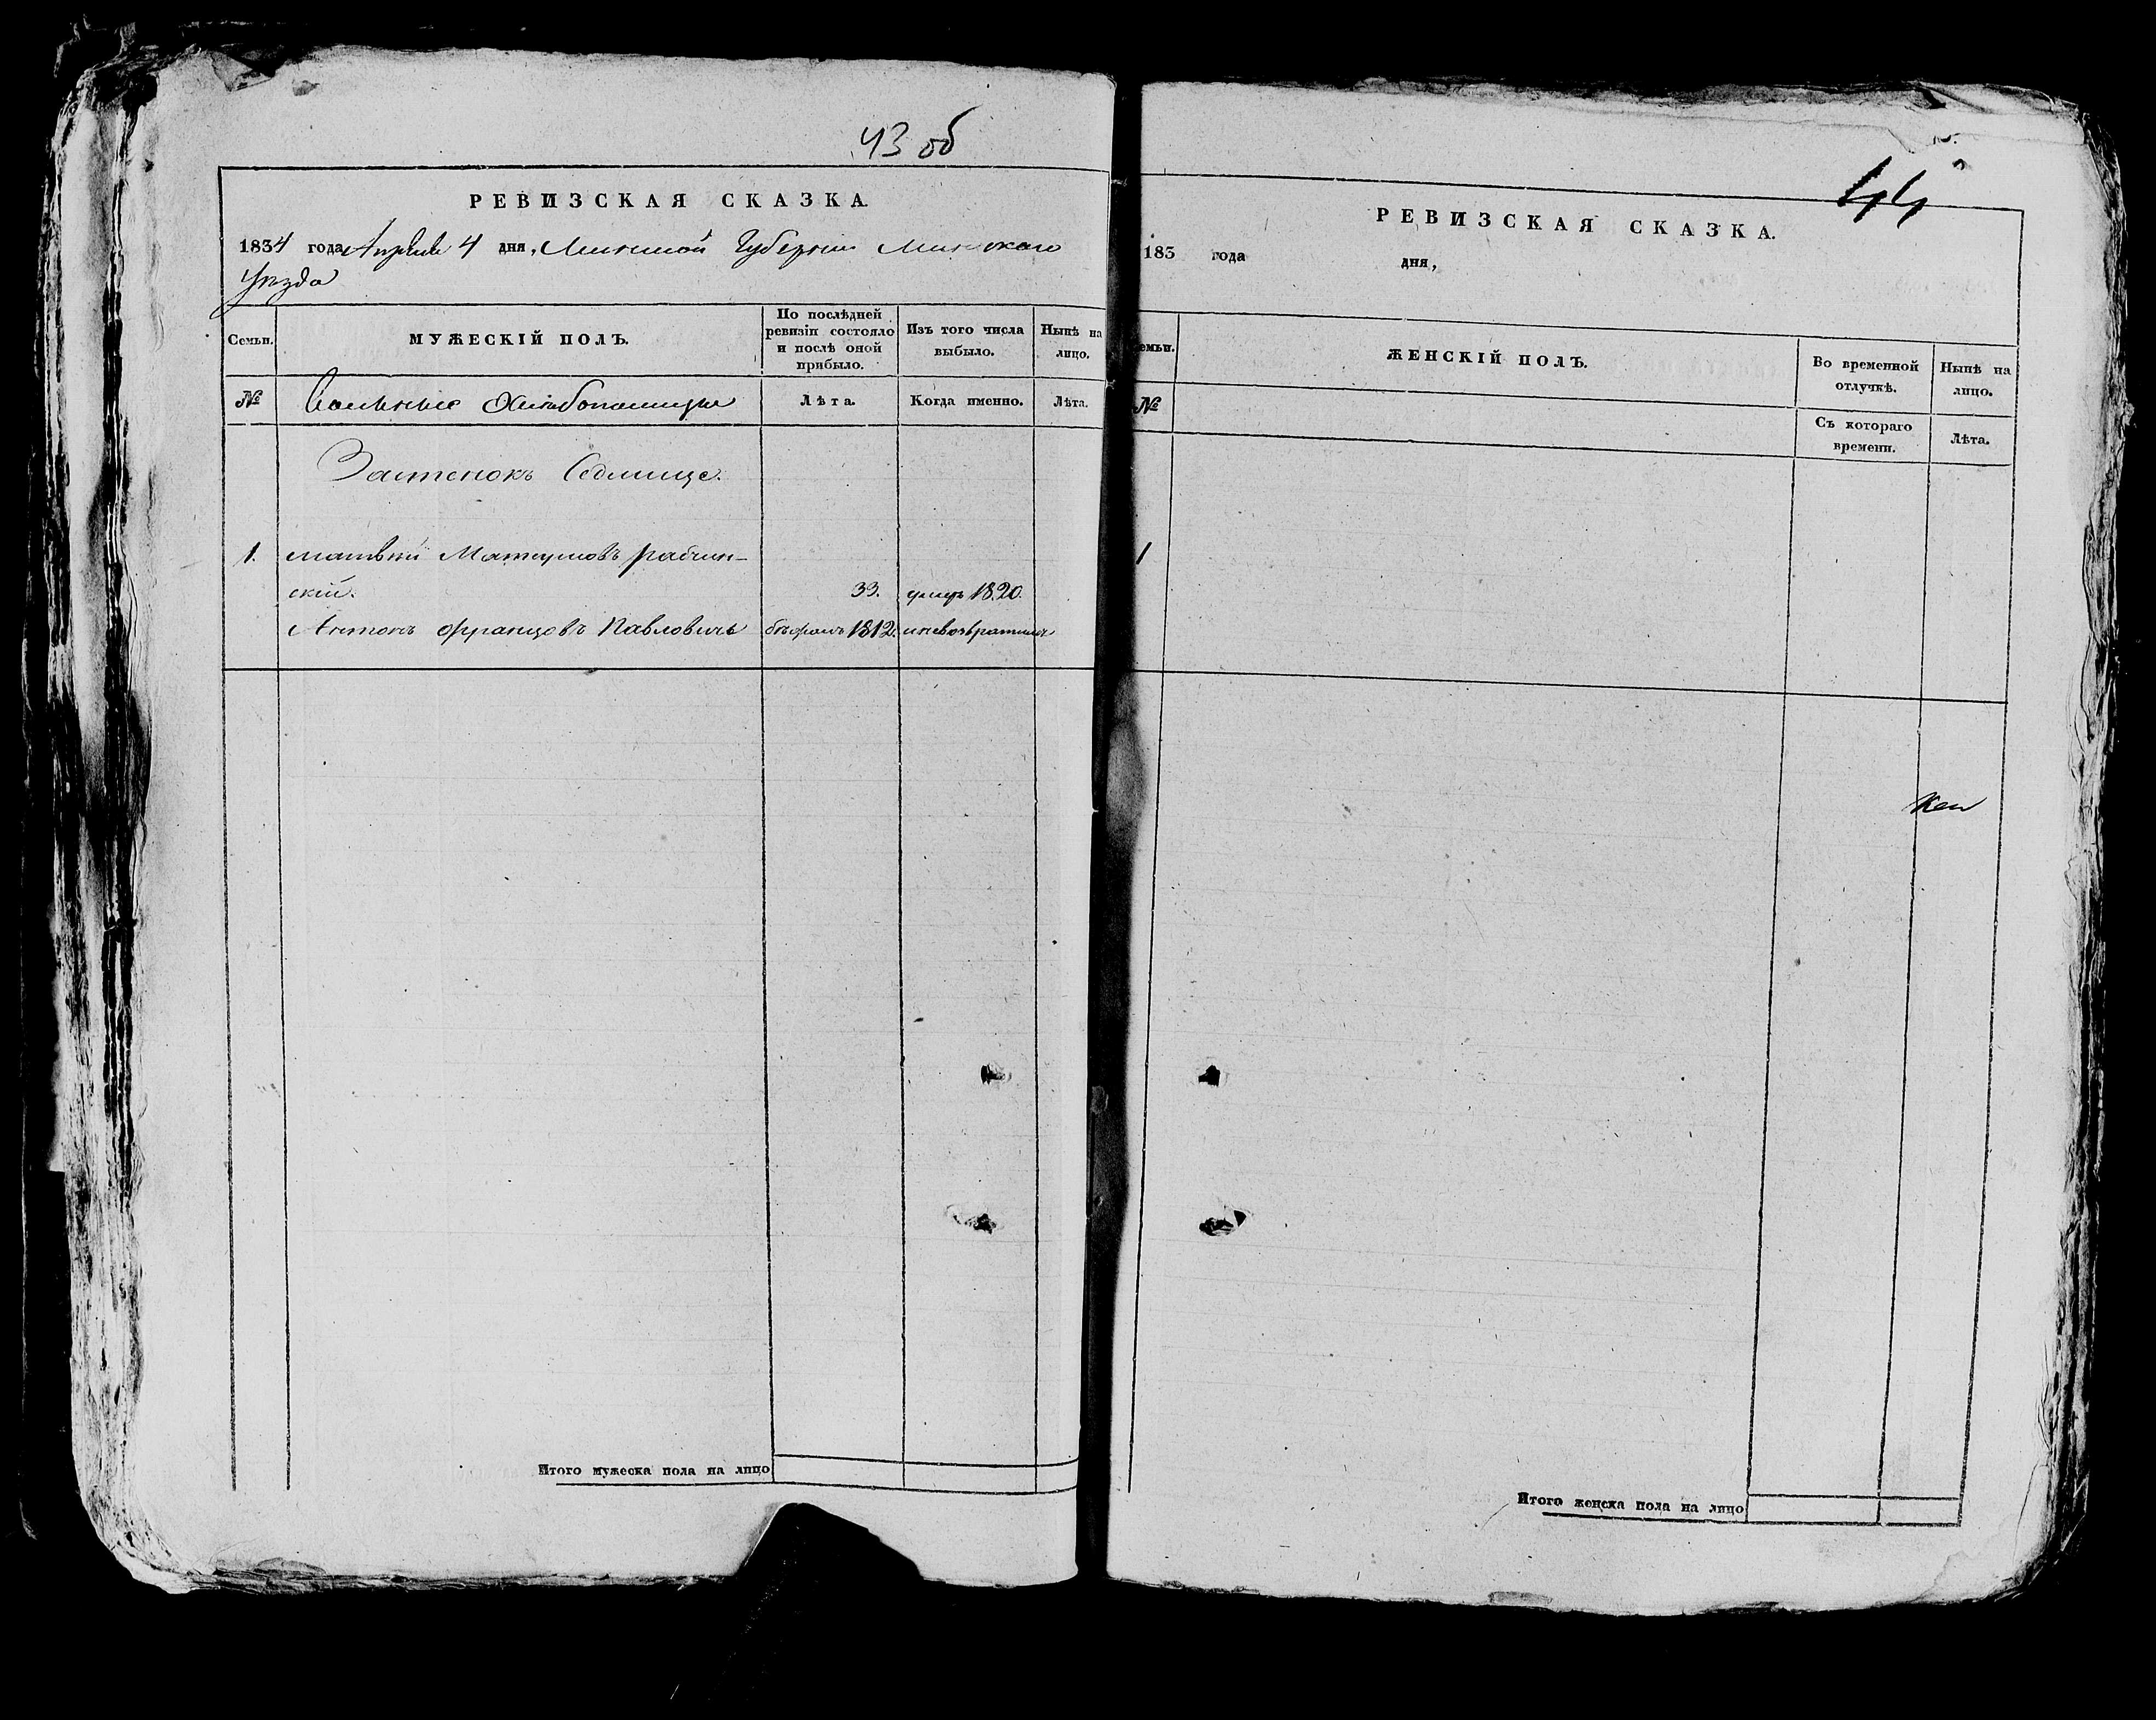 43 об
РЕВИЗСКАЯ СКАЗКА.
1834 года Апреля 4 дня, Минской Губернии Минскаго
уезда
Семьи.
МУЖЕСКІЙ ПОЛЪ.
По послѣдней
ревизіи состояло
и послѣ оной
прибыло.
Изъ того числа
выбыло.
Нынѣ на
лицо.
№
Вольные Хлебопашцы
Лѣта.
Когда именно.
Лѣта.
Застенокъ Седлище.
1. Матвѣй Матеушовъ Рабчин-
скій. 33. умеръ 1820.
Антонъ Францовъ Павловичъ бѣжалъ 1812. и невозвратился
Итого мужеска пола на лицо
44
РЕВИЗСКАЯ СКАЗКА.
183 года дня,
емьи.
ЖЕНСКІЙ ПОЛЪ.
Во временной
отлучкѣ.
Нынѣ на
лицо.
№
Съ котораго
времени.
Лѣта.
1
Итого женска пола на лицо